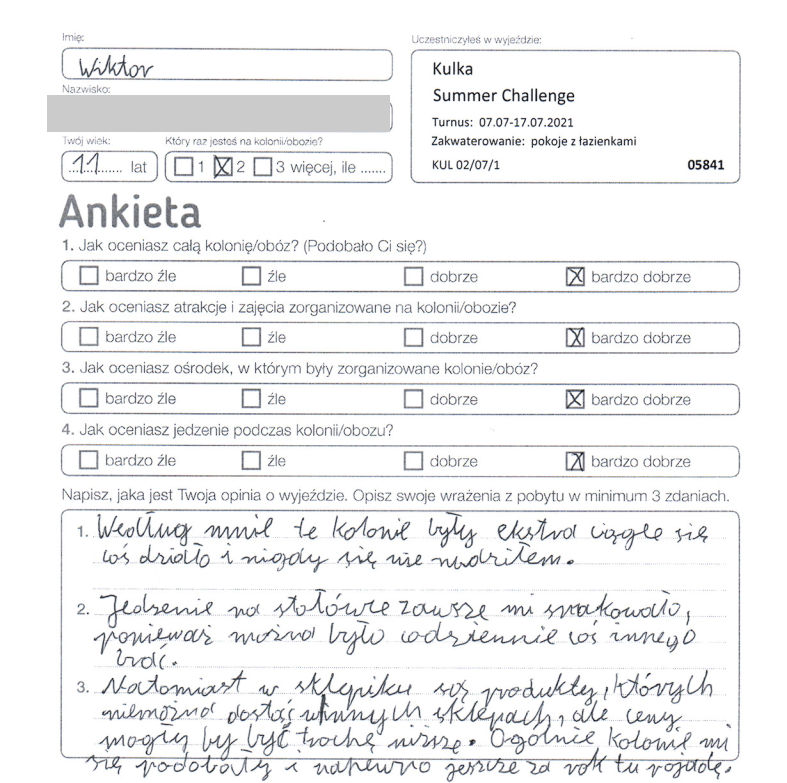 Imię:
Uczestniczyłeś w wyjeździe:
Wiktor
Kulka
Nazwisko:
Summer Challenge
Turnus: 07.07-17.07.2021
Twój wiek:
Który raz jesteś na kolonii/obozie?
Zakwaterowanie: pokoje z łazienkami
11 lat
1 2 3 więcej, ile .......
KUL 02/07/1
05841
Ankieta
1. Jak oceniasz całą kolonię/obóz? (Podobało Ci się?)
bardzo źle źle dobrze bardzo dobrze
2. Jak oceniasz atrakcje i zajęcia zorganizowane na kolonii/obozie?
bardzo źle źle dobrze bardzo dobrze
3. Jak oceniasz ośrodek, w którym były zorganizowane kolonie/obóz?
bardzo źle źle dobrze bardzo dobrze
4. Jak oceniasz jedzenie podczas kolonii/obozu?
bardzo źle źle dobrze bardzo dobrze
Napisz, jaka jest Twoja opinia o wyjeździe. Opisz swoje wrażenia z pobytu w minimum 3 zdaniach.
1. Według mnie te kolonie były ekstra ciągle się
coś działo i nigdy się nie nudziłem.
2. Jedzenie na stołówce zawsze mi smakowało,
ponieważ można było codziennie coś innego
brać.
3. Natomiast w sklepiku są produkty, których
niemożna dostać w innych sklepach, ale ceny
mogły by być trochę niższe. Ogólnie kolonie mi
się podobały i napewno jeszcze za rok tu pojadę.